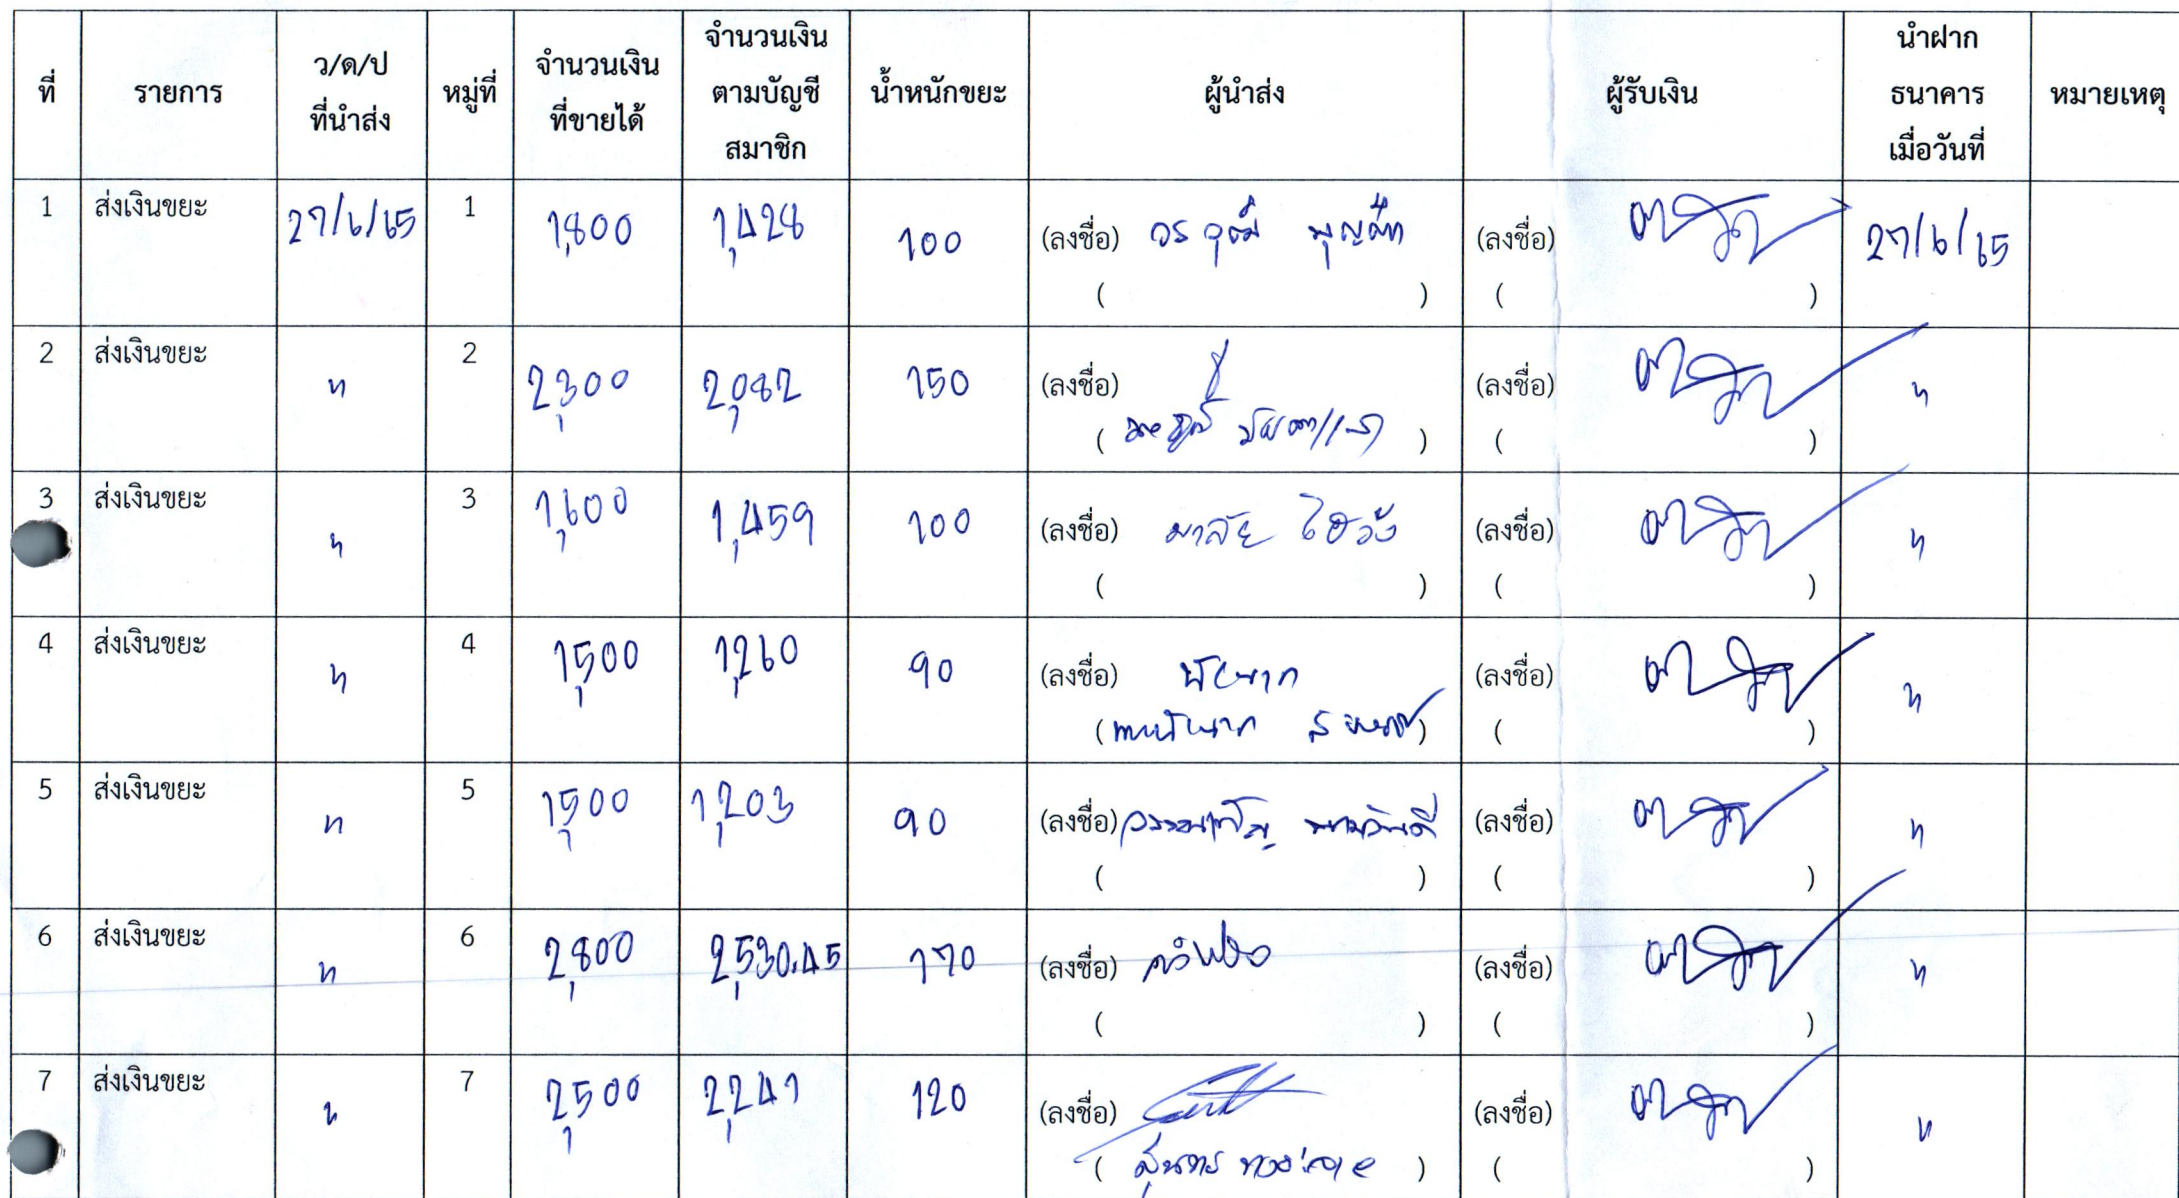 ที่ รายการ ว/ด/ป ที่นำส่ง หมู่ที่ จำนวนเงิน ที่ขายได้ จำนวนเงิน ตามบัญชี สมาชิก น้ำหนักขยะ ผู้นำส่ง ผู้รับเงิน นำฝาก ธนาคาร เมื่อวันที่ หมายเหตุ
1 ส่งเงินขยะ 27/6/65 1 1,800 1,428 100 (ลงชื่อ) (ลงชื่อ) 27/6/65
( ) ( )
2 ส่งเงินขยะ " 2 2,300 2,082 150 (ลงชื่อ) (ลงชื่อ) "
( ) ( )
3 ส่งเงินขยะ " 3 1,600 1,459 100 (ลงชื่อ) มาลัย (ลงชื่อ) "
( ) ( )
4 ส่งเงินขยะ " 4 1,500 1,260 90 (ลงชื่อ) (ลงชื่อ) "
( ) ( )
5 ส่งเงินขยะ " 5 1,500 1,203 90 (ลงชื่อ) (ลงชื่อ) "
( ) ( )
6 ส่งเงินขยะ " 6 2,800 2,530.45 170 (ลงชื่อ) (ลงชื่อ) "
( ) ( )
7 ส่งเงินขยะ " 7 2,500 2,241 120 (ลงชื่อ) (ลงชื่อ) "
( ) ( )